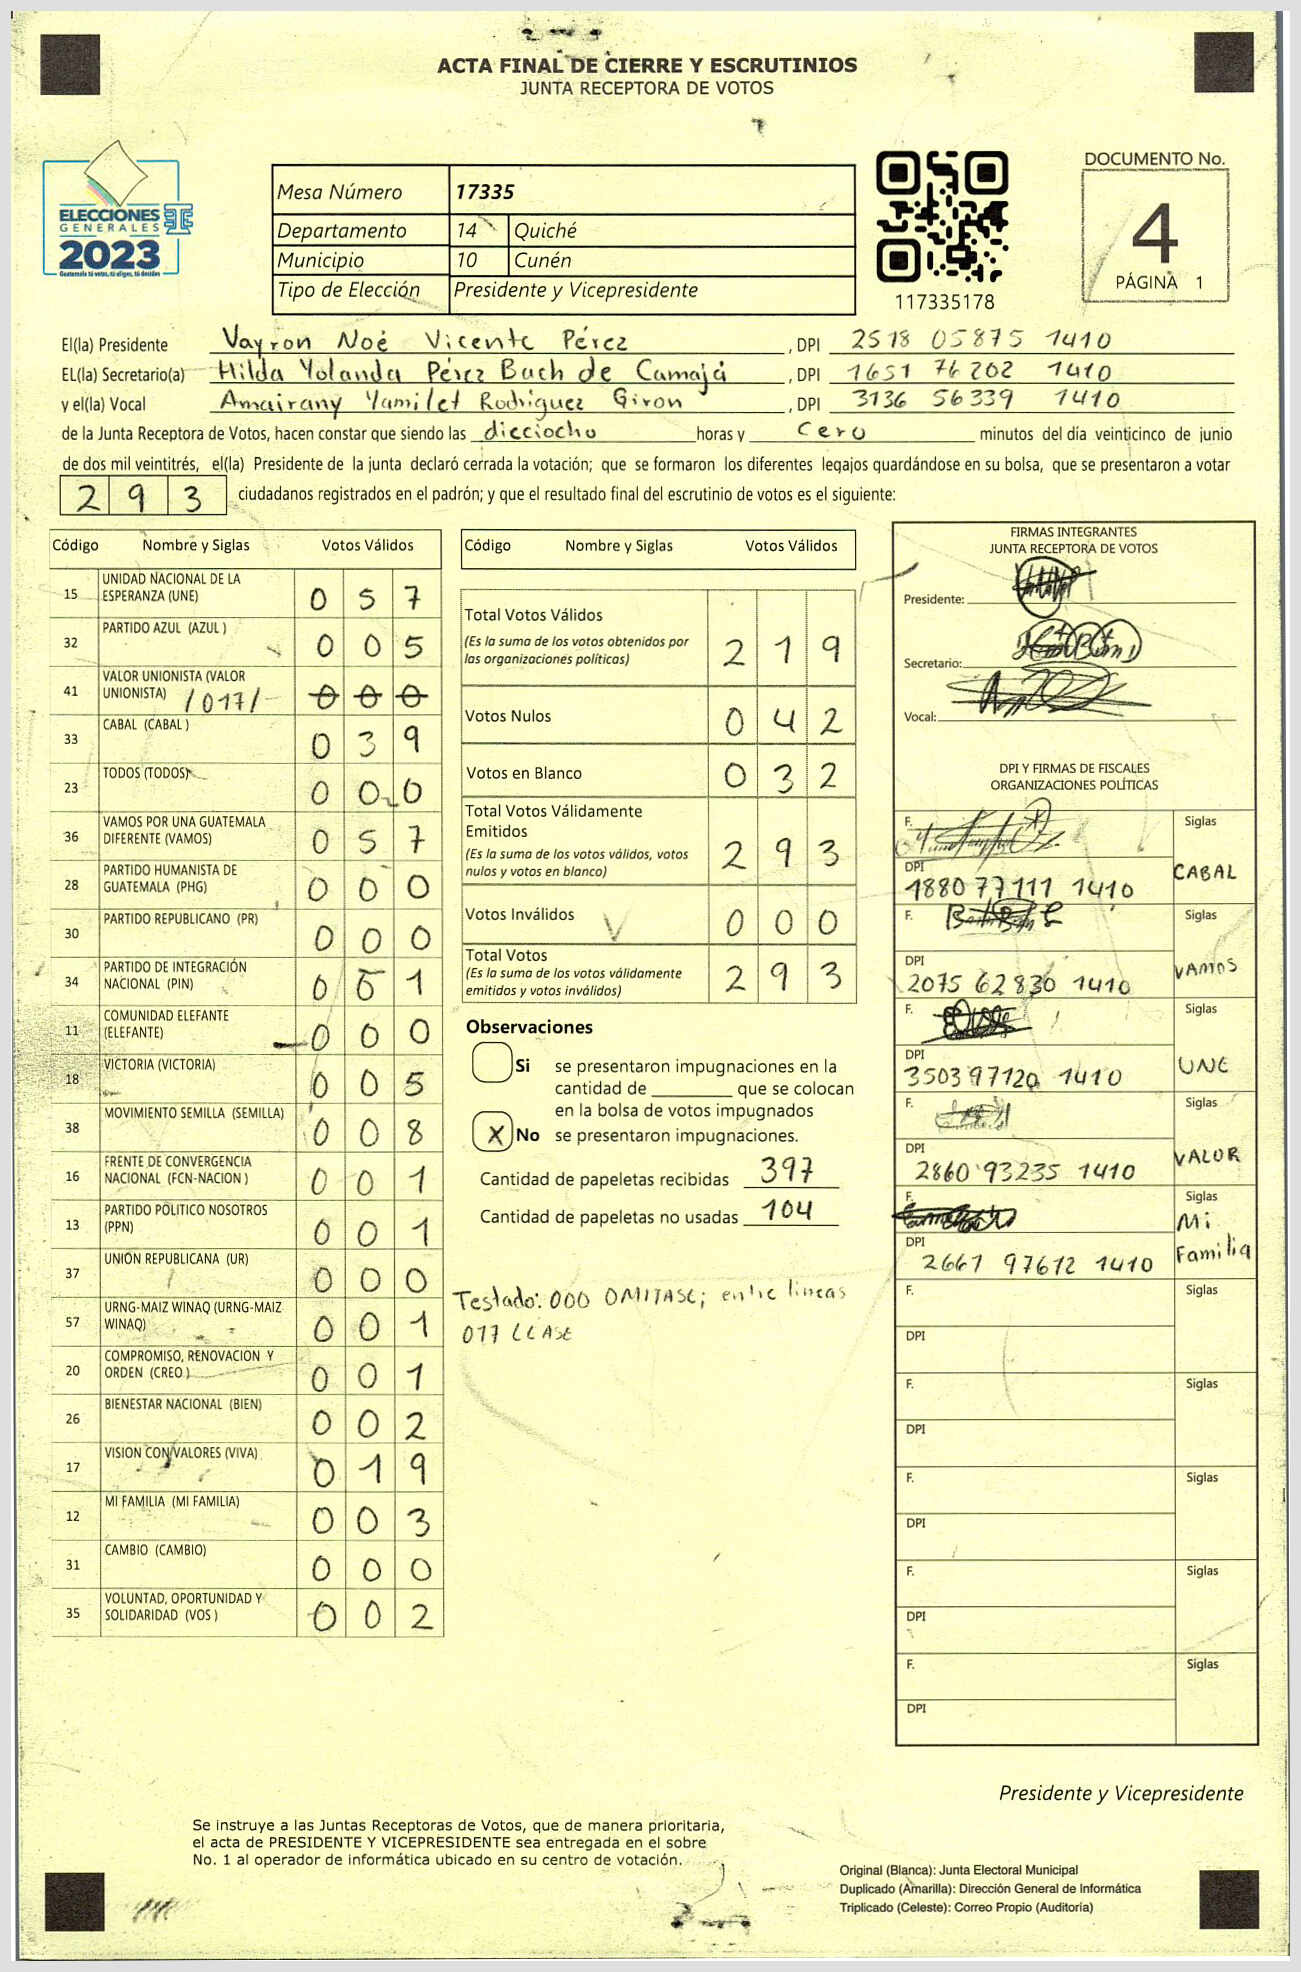 ACTA FINAL DE CIERRE Y ESCRUTINIOS
JUNTA RECEPTORA DE VOTOS
ELECCIONES
GENERALES
2023
Guatemala tú votas, tú eliges, tú decides
Mesa Número 17335
Departamento 14 Quiché
Municipio 10 Cunén
Tipo de Elección Presidente y Vicepresidente
117335178
DOCUMENTO No.
4
PÁGINA 1
El(la) Presidente Vayron Noé Vicente Pérez , DPI 2518 05875 1410
EL(la) Secretario(a) Hilda Yolanda Pérez Bach de Camajá , DPI 1651 76202 1410
y el(la) Vocal Amairany Yamilet Rodríguez Giron , DPI 3136 56339 1410
de la Junta Receptora de Votos, hacen constar que siendo las dieciocho horas y cero minutos del día veinticinco de junio
de dos mil veintitrés, el(la) Presidente de la junta declaró cerrada la votación; que se formaron los diferentes legajos guardándose en su bolsa, que se presentaron a votar
293 ciudadanos registrados en el padrón; y que el resultado final del escrutinio de votos es el siguiente:
Código Nombre y Siglas Votos Válidos
15 UNIDAD NACIONAL DE LA ESPERANZA (UNE) 0 5 7
32 PARTIDO AZUL (AZUL ) 0 0 5
41 VALOR UNIONISTA (VALOR UNIONISTA) /017/ 0 0 0
33 CABAL (CABAL ) 0 3 9
23 TODOS (TODOS) 0 0 0
36 VAMOS POR UNA GUATEMALA DIFERENTE (VAMOS) 0 5 7
28 PARTIDO HUMANISTA DE GUATEMALA (PHG) 0 0 0
30 PARTIDO REPUBLICANO (PR) 0 0 0
34 PARTIDO DE INTEGRACIÓN NACIONAL (PIN) 0 0 1
11 COMUNIDAD ELEFANTE (ELEFANTE) 0 0 0
18 VICTORIA (VICTORIA) 0 0 5
38 MOVIMIENTO SEMILLA (SEMILLA) 0 0 8
16 FRENTE DE CONVERGENCIA NACIONAL (FCN-NACION ) 0 0 1
13 PARTIDO POLITICO NOSOTROS (PPN) 0 0 1
37 UNION REPUBLICANA (UR) 0 0 0
57 URNG-MAIZ WINAQ (URNG-MAIZ WINAQ) 0 0 1
20 COMPROMISO, RENOVACION Y ORDEN (CREO ) 0 0 1
26 BIENESTAR NACIONAL (BIEN) 0 0 2
17 VISION CON VALORES (VIVA) 0 1 9
12 MI FAMILIA (MI FAMILIA) 0 0 3
31 CAMBIO (CAMBIO) 0 0 0
35 VOLUNTAD, OPORTUNIDAD Y SOLIDARIDAD (VOS ) 0 0 2
Código Nombre y Siglas Votos Válidos
Total Votos Válidos 2 1 9
(Es la suma de los votos obtenidos por
las organizaciones políticas)
Votos Nulos 0 4 2
Votos en Blanco 0 3 2
Total Votos Válidamente
Emitidos 2 9 3
(Es la suma de los votos válidos, votos
nulos y votos en blanco)
Votos Inválidos 0 0 0
Total Votos 2 9 3
(Es la suma de los votos válidamente
emitidos y votos inválidos)
Observaciones
Si se presentaron impugnaciones en la
cantidad de ________ que se colocan
en la bolsa de votos impugnados
X No se presentaron impugnaciones.
Cantidad de papeletas recibidas 397
Cantidad de papeletas no usadas 104
Testado: 000 OMITASE; entre lineas
017 LEASE
FIRMAS INTEGRANTES
JUNTA RECEPTORA DE VOTOS
Presidente:
Secretario:
Vocal:
DPI Y FIRMAS DE FISCALES
ORGANIZACIONES POLÍTICAS
F. Siglas
DPI 1880 77111 1410 CABAL
F. Siglas
DPI 2075 62830 1410 VAMOS
F. Siglas
DPI 3503 97120 1410 UNE
F. Siglas
DPI 2860 93235 1410 VALOR
F. Siglas
DPI 2661 97612 1410 Mi Familia
F. Siglas
DPI
F. Siglas
DPI
F. Siglas
DPI
F. Siglas
DPI
F. Siglas
DPI
Presidente y Vicepresidente
Se instruye a las Juntas Receptoras de Votos, que de manera prioritaria,
el acta de PRESIDENTE Y VICEPRESIDENTE sea entregada en el sobre
No. 1 al operador de informática ubicado en su centro de votación.
Original (Blanca): Junta Electoral Municipal
Duplicado (Amarilla): Dirección General de Informática
Triplicado (Celeste): Correo Propio (Auditoría)